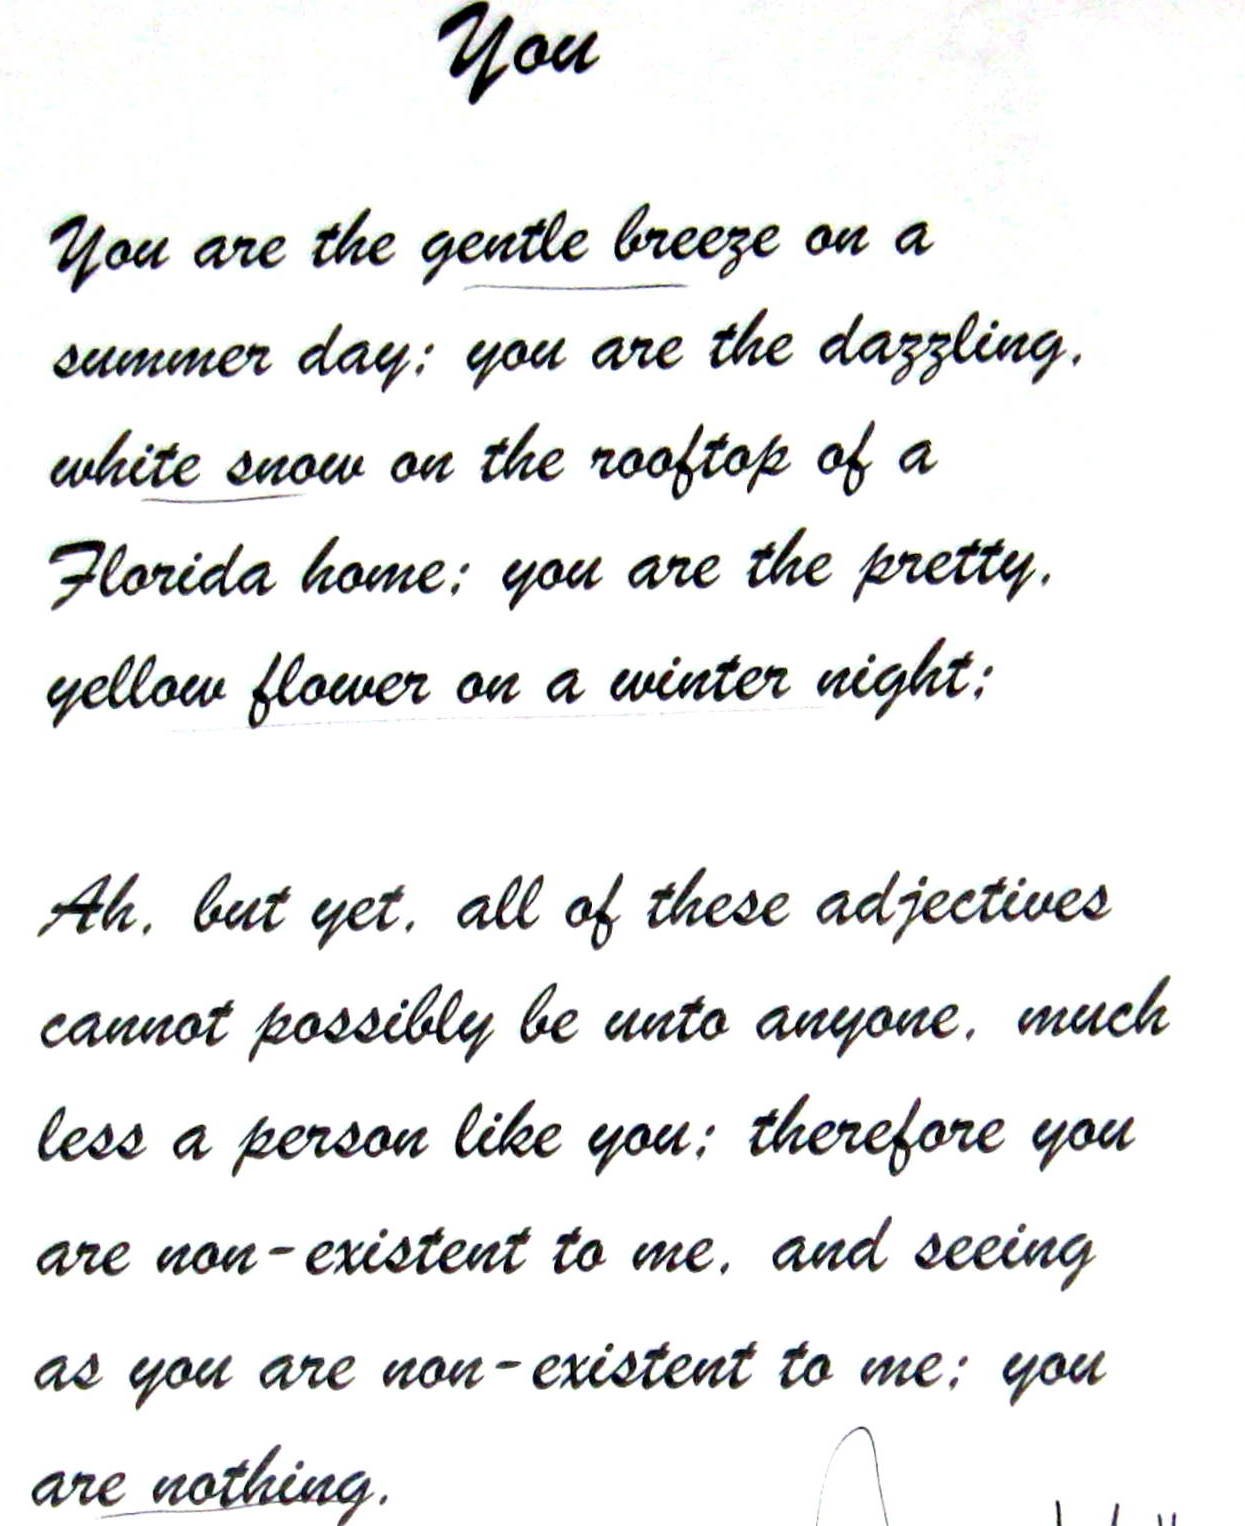 You
You are the gentle breeze on a
summer day; you are the dazzling,
white snow on the rooftop of a
Florida home; you are the pretty,
yellow flower on a winter night;
Ah, but yet, all of these adjectives
cannot possibly be unto anyone, much
less a person like you; therefore you
are non-existent to me, and seeing
as you are non-existent to me; you
are nothing.